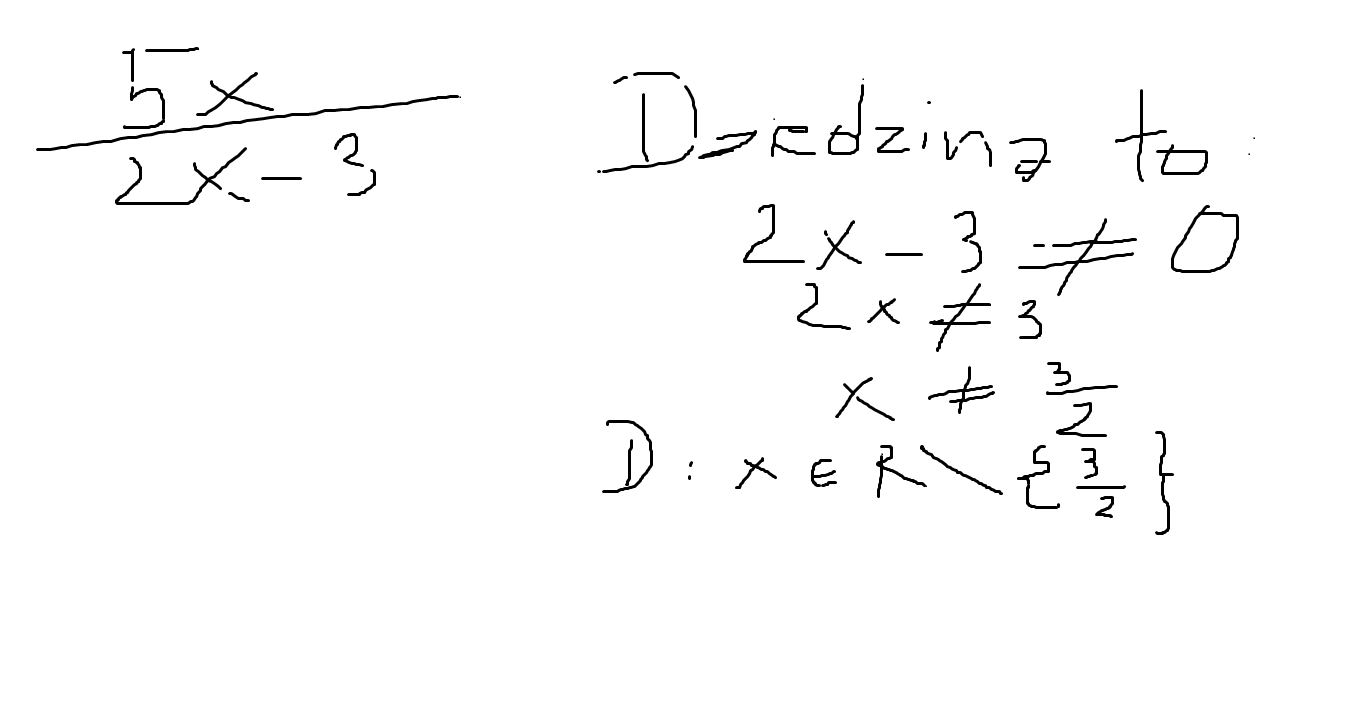 5x
2x - 3
Dziedzina to
2x - 3 ≠ 0
2x ≠ 3
x ≠ 3/2
D: x ∈ R \ {3/2}